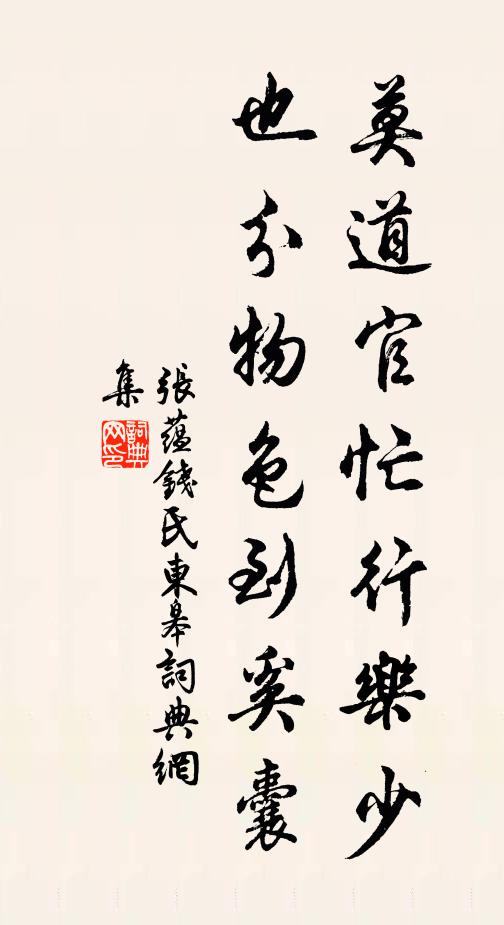 莫道官忙行樂少
也分物色到奚囊
張蘊錢氏東皋詞典網
集
詞典
网印